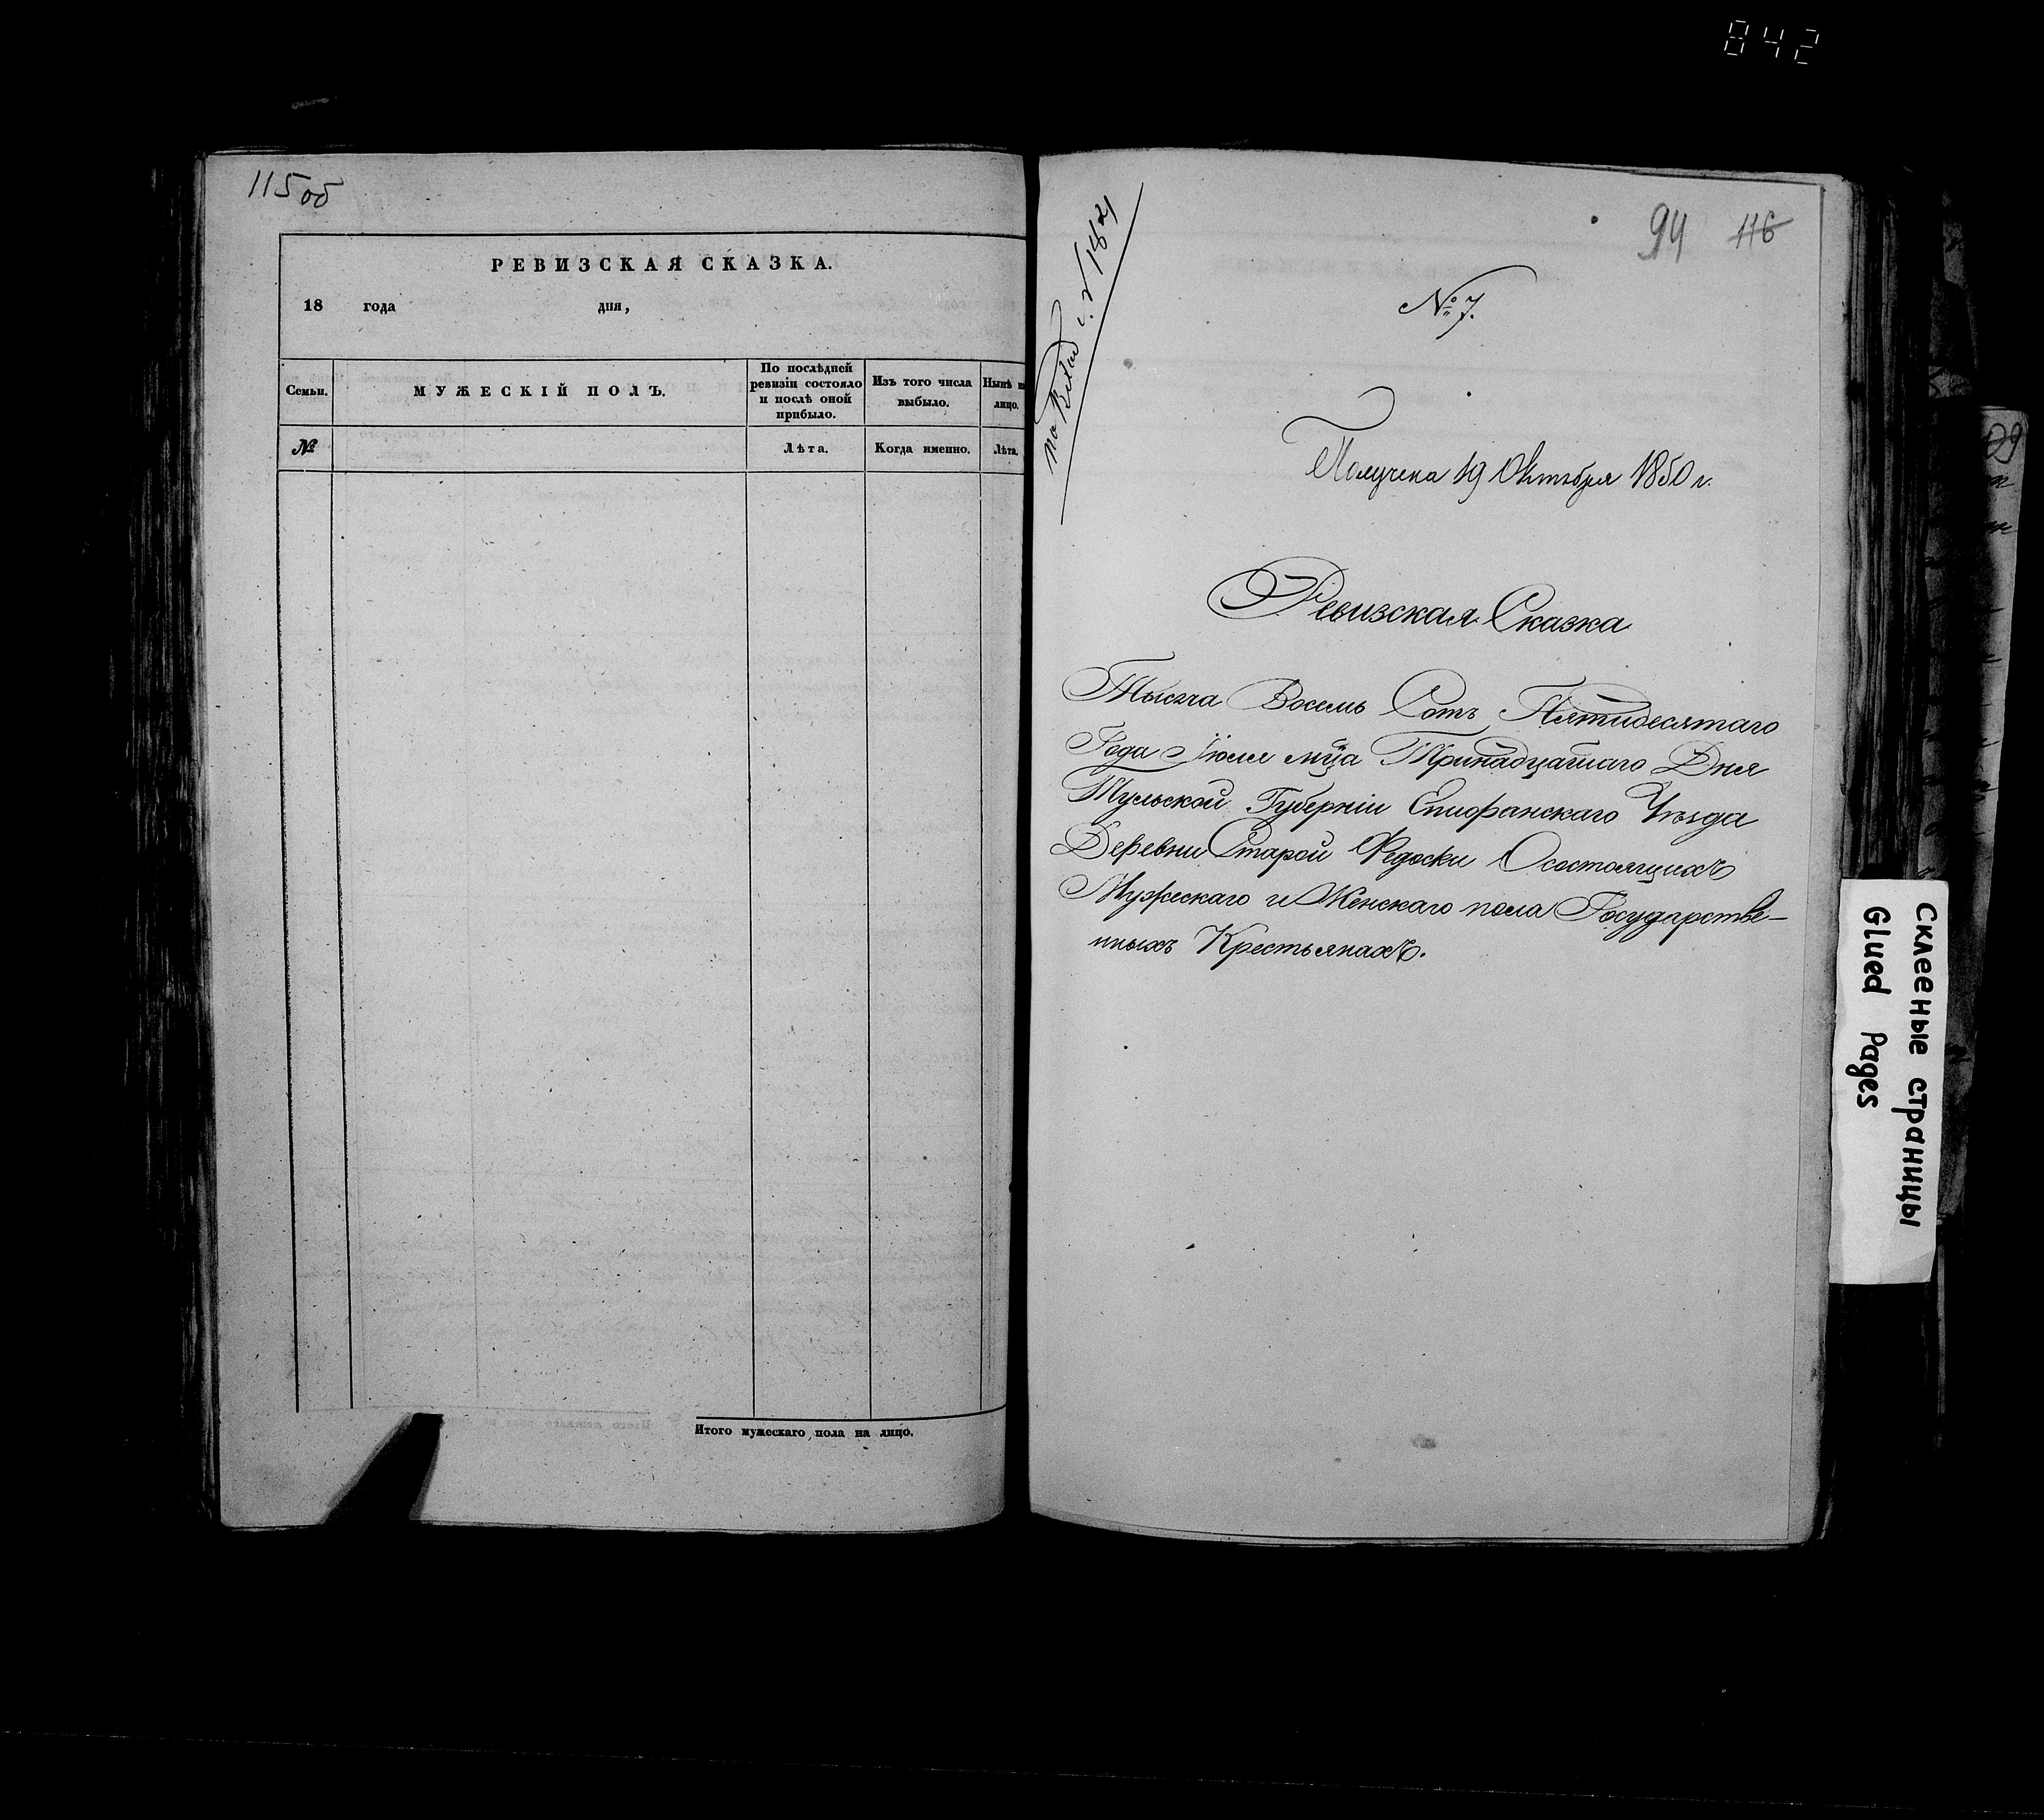 842
115об
РЕВИЗСКАЯ СКАЗКА.
18 года дня,
Семьи.
МУЖЕСКІЙ ПОЛЪ.
По послѣдней
ревизіи состояло
и послѣ оной
прибыло.
Изъ того числа
выбыло.
Нынѣ н
лицо.
№
Лѣта.
Когда именно.
Лѣта.
Итого мужескаго пола на лицо.
94 116
№ 7.
Получена 19 Октября 1850 г.
Ревизская Сказка
Тысяча Восемь Сотъ Пятидесятаго
Года Іюля мца Тринадцатаго Дня
Тульской Губерніи Епифанскаго Уѣзда
Деревни Старой Федоски Осостоящихъ
Мужескаго и Женскаго пола Государстве-
нныхъ Крестьянахъ.
Склееные страницы
Glued Pages